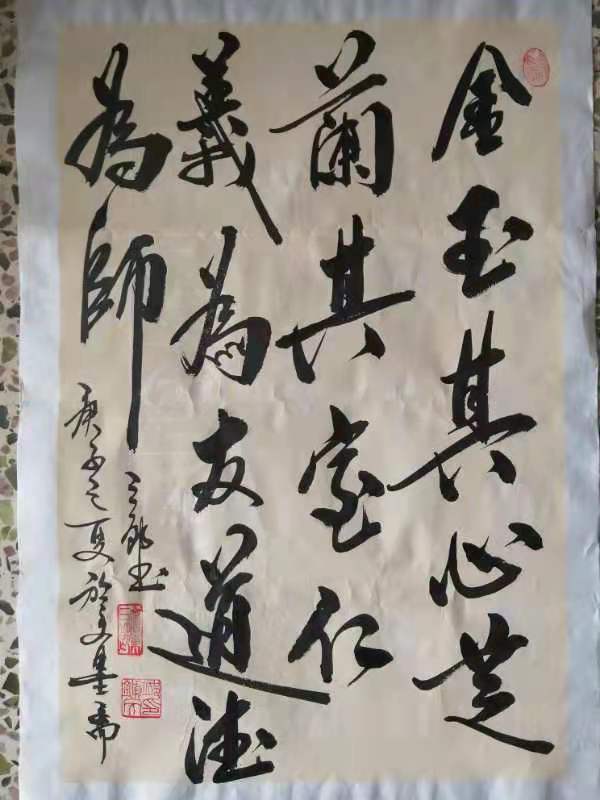 金玉其心芝
蘭其室仁
義為友道德
為師
庚子之夏於文墨斋
三郎书